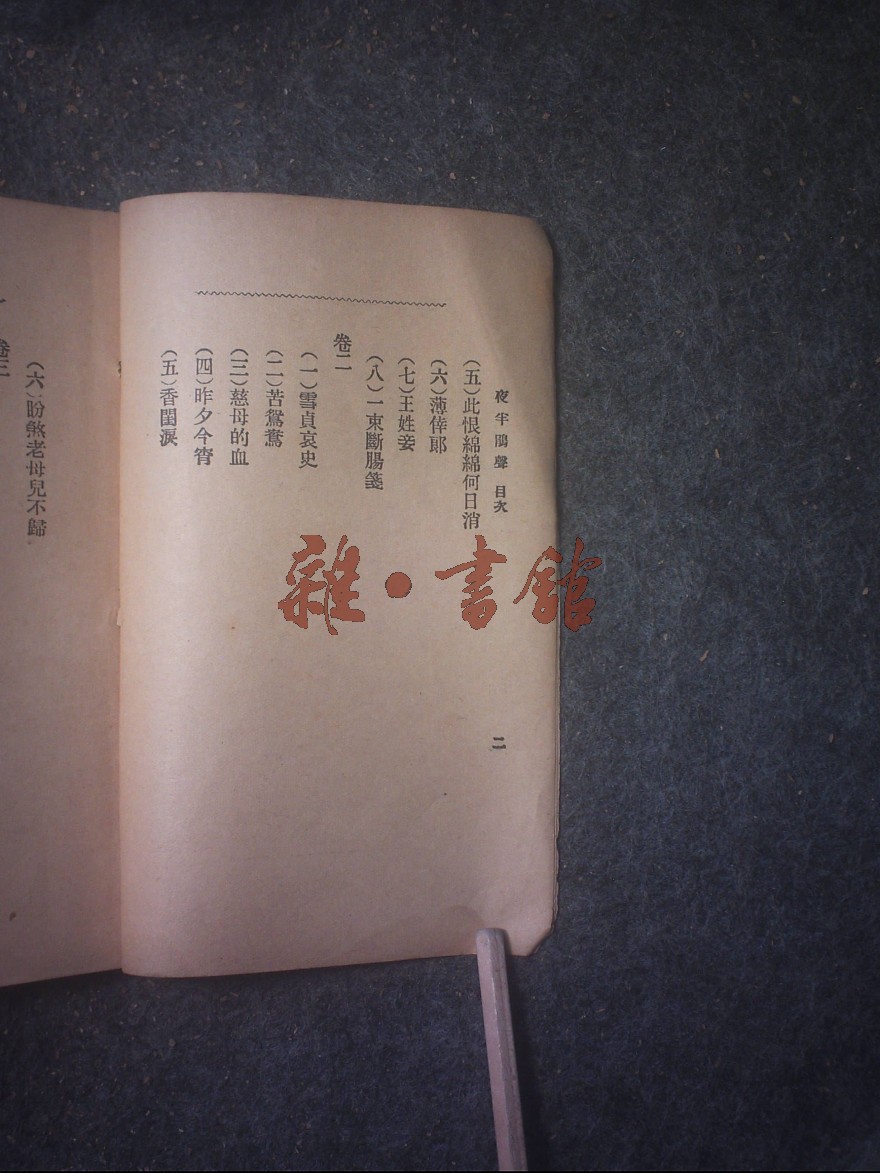 夜半鵑聲 目次
二
(五)此恨綿綿何日消
(六)薄倖郎
(七)王姓妾
(八)一束斷腸箋
卷二
(一)雪貞哀史
(二)苦鴛鴦
(三)慈母的血
(四)昨夕今宵
(五)香閨淚
(六)盼煞老母兒不歸
卷三
雜·書館